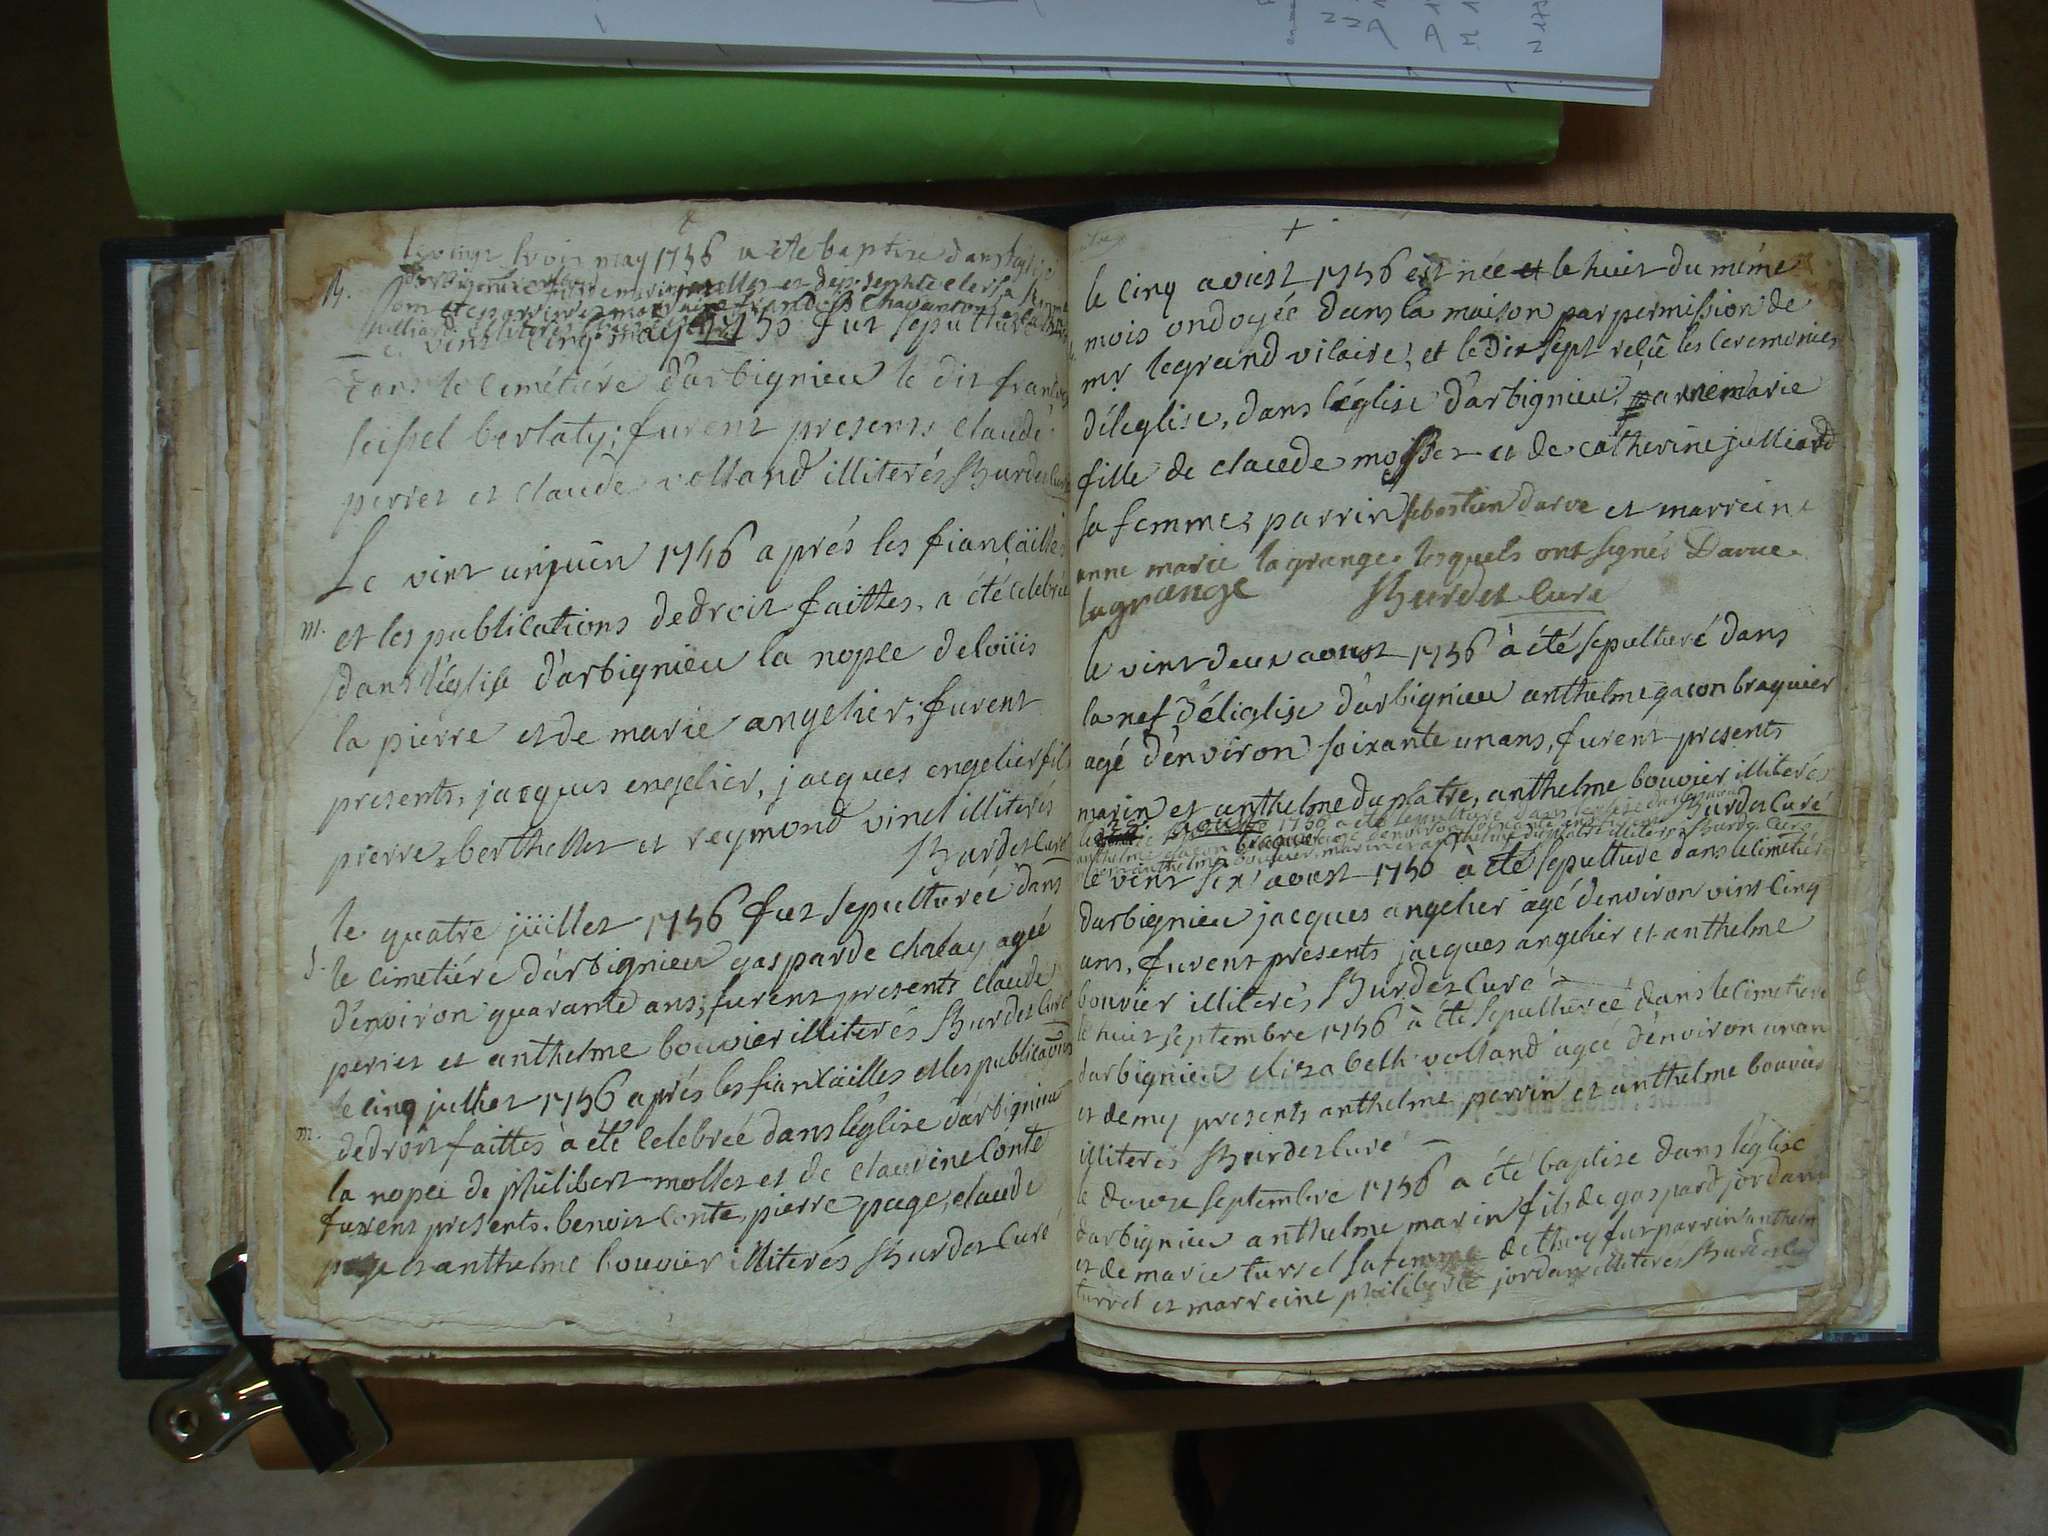 le vingt trois may 1756 a ete baptisé dans leglise
B.
le vint cinq may 1756 fut sepulturé
dans le cimétiére d'arbignieu le dit francois
seissel berlaty; furent presents claude
perret et claude volland illiterés Burdet curé
Le vint un juin 1756 aprés les fiancailles
m. et les publications de droit faittes, a été celebrée
dans l'église d'arbignieu la nopce de loüis
la pierre et de marie angelier; furent
presents, jacques engelier, jacques engelier fils
pierre berthellet et reymond vinel illiterés
Burdet Curé
le quatre juillet 1756 fut sepulturéé dans
S. le cimetiére d'arbignieu gasparde chalay agéé
d'énviron quarante ans; furent presents claude
perret et anthelme bouvier illiterés Burdet Curé
le cinq juillet 1756 aprés les fiancailles et les publications
m. de droit faittes à été celebréé dans léglise d'arbignieu
la nopce de philibert mollet et de claudine Conte
furent presents. benoit Conte, pierre page, claude
page et anthelme bouvier illiterés Burdet Curé
+
le cinq aoust 1756 est née et le huit du méme
mois ondoyéé dans la maison par permission de
mr le grand vicaire, et le dix sept reçû les ceremonies
d'éleglise, dans léglise d'arbignieu, anne marie
fille de claude mosset et de catherine julliard
sa femme, parrin sebastien darve et marreine
anne marie lagrange lesquels ont signés Darve
lagrange Burdet Curé
le vint deux aoust 1756 à été sepulturé dans
la nef d'éléglise d'arbignieu anthelme gacon braquier
agé d'énviron soixante un ans, furent presents
marin et anthelme duplatre, anthelme bouvier illiterés
Burdet Curé
aoust 1756 a eté sepulturé dans leglise darbignieu
anthelme gacon braquier agé denviron soixante
anthelme bouvier, marin et anthelme duplatre illiteres Burdet Curé
le vint six aoust 1756 à été sepulturé dans le cimetiére
darbignieu jacques angelier agé d'énviron vint cinq
ans, furent presents jacques angelier et anthelme
bouvier illiterés Burdet Curé
le huit septembre 1756 à été sepulturéé dans le cimetiere
darbignieu elizabeth volland agéé d'énviron un an
et demy presents anthelme perrin et anthelme bouvier
illiterés Burdet Curé
le douze septembre 1756 a été baptisé dans léglise
d'arbignieu anthelme marin fils de gaspard jordan
et de marie turrel sa femme de thoy fut parrin anthelme
turrel et marreine philiberte jordan illiteres Burdet Curé